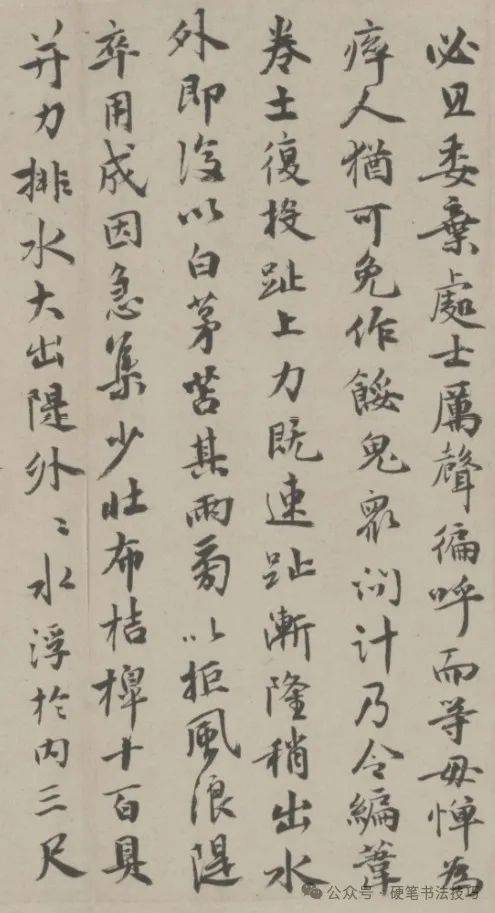 必且委棄處士厲聲徧呼而等毋憚為
瘁人猶可免作餒鬼眾問計乃令編葦
卷土復投趾上力既速趾漸隆稍出水
外即以白茅苫其兩旁以拒風浪隄
卒用成因急集少壯布桔槔十百具
并力排水大出隄外〻水浮於內三尺
公众号·硬笔书法技巧